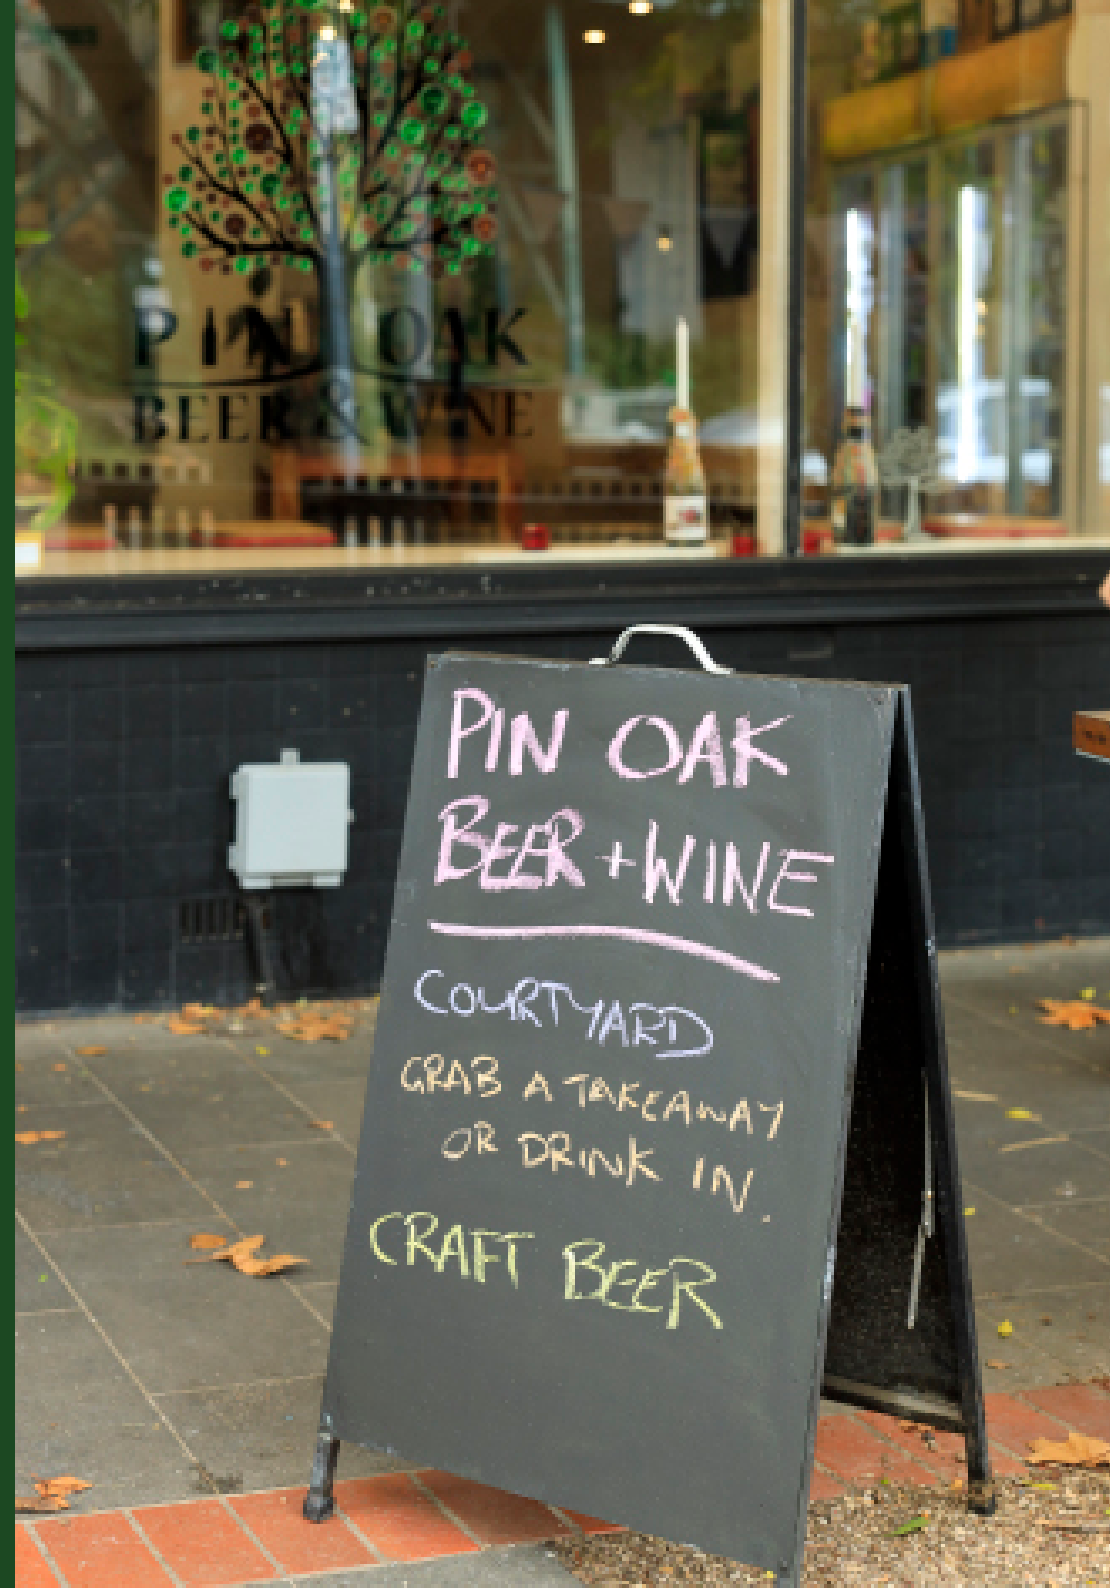 PIN OAK
BEER & WINE
PIN OAK
BEER + WINE
COURTYARD
GRAB A TAKEAWAY
OR DRINK IN.
CRAFT BEER